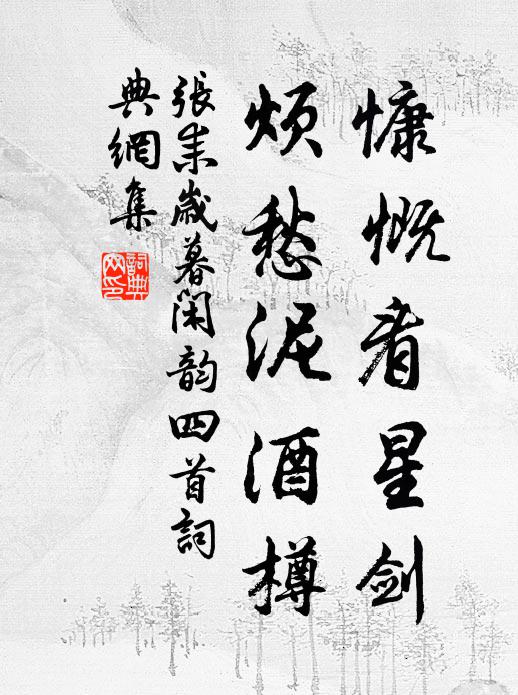 慷慨看星剑
烦愁泥酒樽
張耒歲暮閑韵四首詞
典網集
詞典
网印